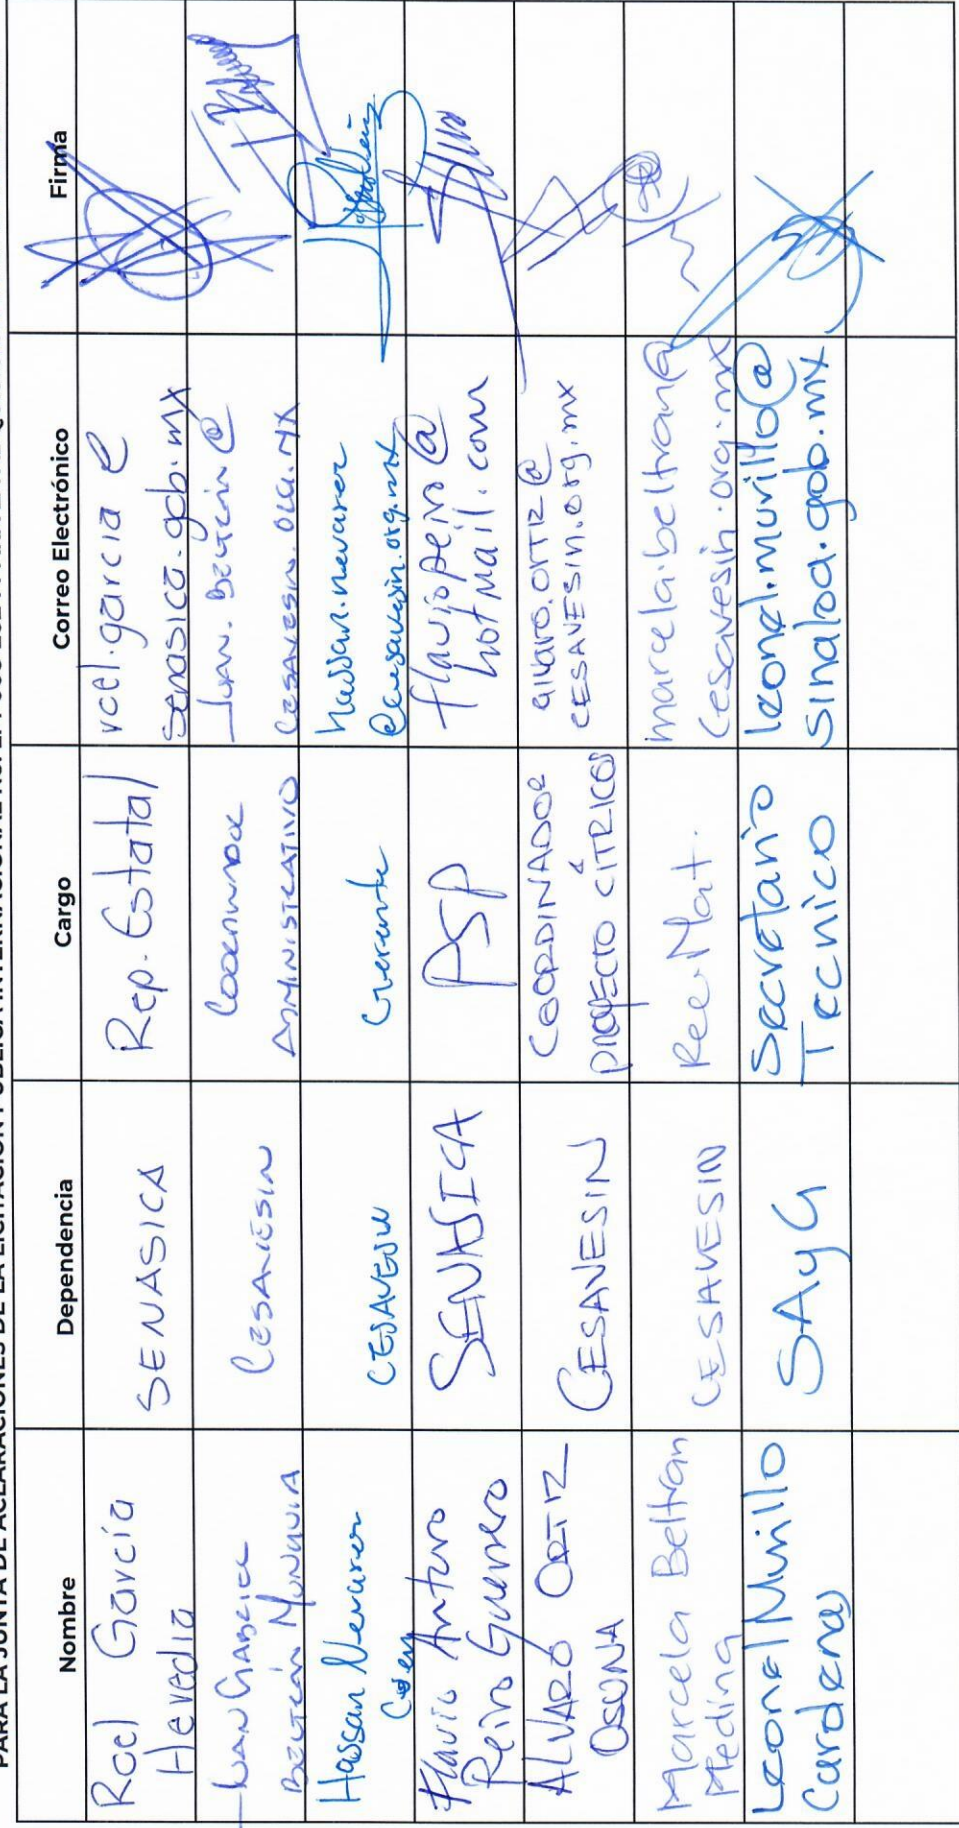 PARA LA JUNTA DE ACLARACIONES DE LA LICITACIÓN PÚBLICA INTERNACIONAL
Nombre Dependencia Cargo Correo Electrónico Firma
Roel García Heredia SENASICA Rep. Estatal roel.garcia@
senasica.gob.mx
Juan Gabriel
Beltrán Munguia CESAVESIN Coordinador
Administrativo Juan.Beltrán@
cesavesin.org.mx
Hassan Nevarez
CESAVESIN Gerente hassan.nevarez
@cesavesin.org.mx
Flavio Arturo
Peiro Guerrero SENASICA PSP flaviopeiro@
hotmail.com
ALVARO ORTIZ
OSUNA CESAVESIN COORDINADOR
PROYECTO CÍTRICOS alvaro.ORTIZ@
CESAVESIN.org.mx
Marcela Beltran
Medina CESAVESIN Rec. Mat. marcela.beltran@
cesavesin.org.mx
Leonel Murillo
Cardenas SAyG Secretario
Tecnico leonel.murillo@
sinaloa.gob.mx